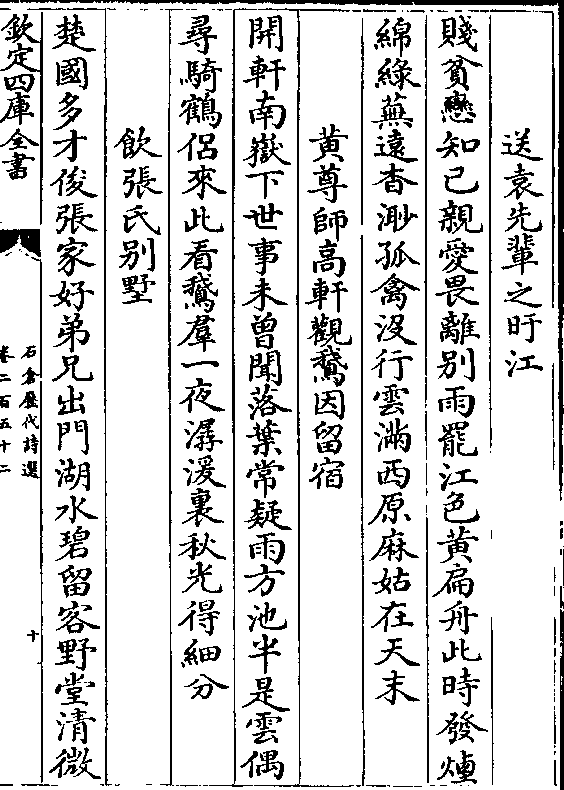 送袁先輩之旴江
賤貧戀知己親愛畏離別雨罷江色黄扁舟此時發煙
綿緑蕪遠杳渺孤禽没行雲滿西原麻姑在天末
黄尊師高軒觀鵞因留宿
開軒南嶽下世事未曾聞落葉常疑雨方池半是雲偶
尋騎鶴侶來此看鵞羣一夜潺湲裏秋光得細分
飲張氏别墅
楚國多才俊張家好弟兄出門湖水碧留客野堂清微
欽定四庫全書
石倉歷代詩選
卷二百五十二
十